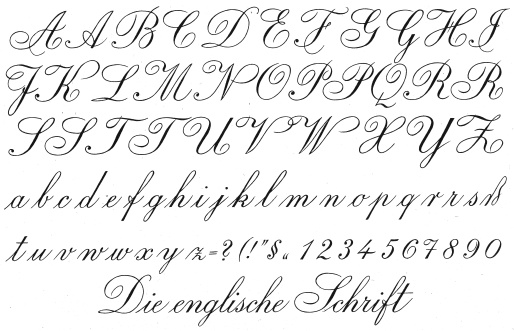 A A B C D E F G G H I
J K L M N O P P Q R R
S S T T U V W X Y Z
a b c d e f g h i j k l m n o p q r r s ß
t u v w w x y z = ? ( ! " § „ 1 2 3 4 5 6 7 8 9 0
Die englische Schrift